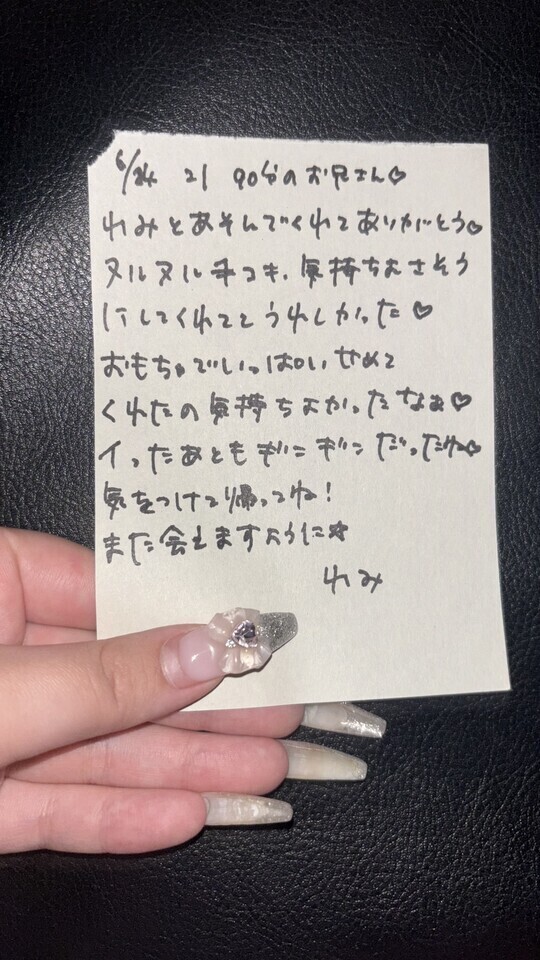 6/24 21 90分のお兄さん♡
れみとあそんでくれてありがとう♡
ヌルヌル手コキ、気持ちよさそう
にしてくれててうれしかった♡
おもちゃでいっぱいせめて
くれたの気持ちよかったなぁ♡
イったあともギンギンだったね♡
気をつけて帰ってね!
また会えますように☆
れみ